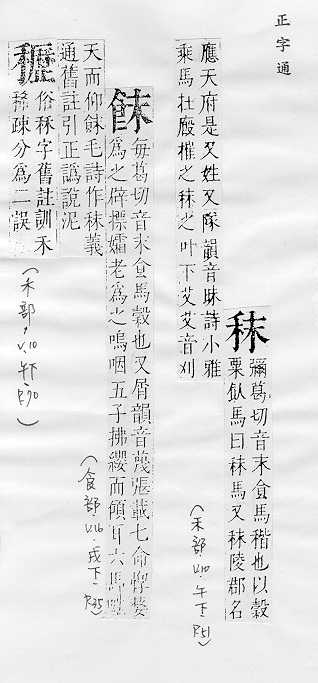 正字通
秣 彌葛切音末食馬稭也以穀
粟飤馬曰秣馬又秣陵郡名
應天府是又姓又隊韻音昧詩小雅
乘馬在廏摧之秣之叶下艾艾音刈
(禾部．V.10．午下．P.51)
䬴 每葛切音末食馬穀也又屑韻音蔑張載七命惸嫠
爲之擗摽孀老爲之嗚咽五子拂纓而傾耳六馬噓
天而仰䬴毛詩作秣義
通舊註引正譌說泥
(食部．V.16．戌下．P.35)
俗秝字舊註訓禾
稀疎分爲二誤
(禾部，V.10 午下 P.70)